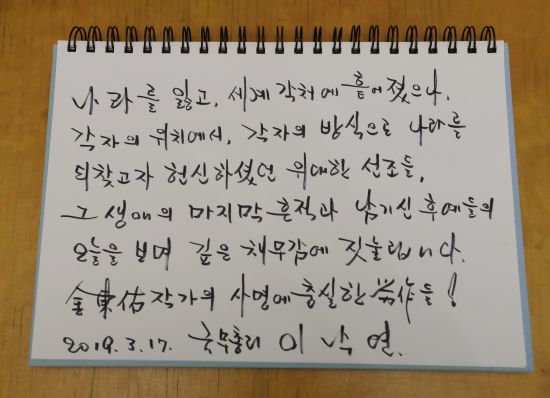 나라를 잃고, 세계 각처에 흩어졌으나,
각자의 위치에서, 각자의 방식으로 나라를
되찾고자 헌신하셨던 위대한 선조들,
그 생애의 마지막 흔적과 남기신 후예들의
오늘을 보며 깊은 채무감에 짓눌립니다.
金東佑 작가의 사명에 충실한 勞作들!
2019. 3. 17. 국무총리 이낙연.